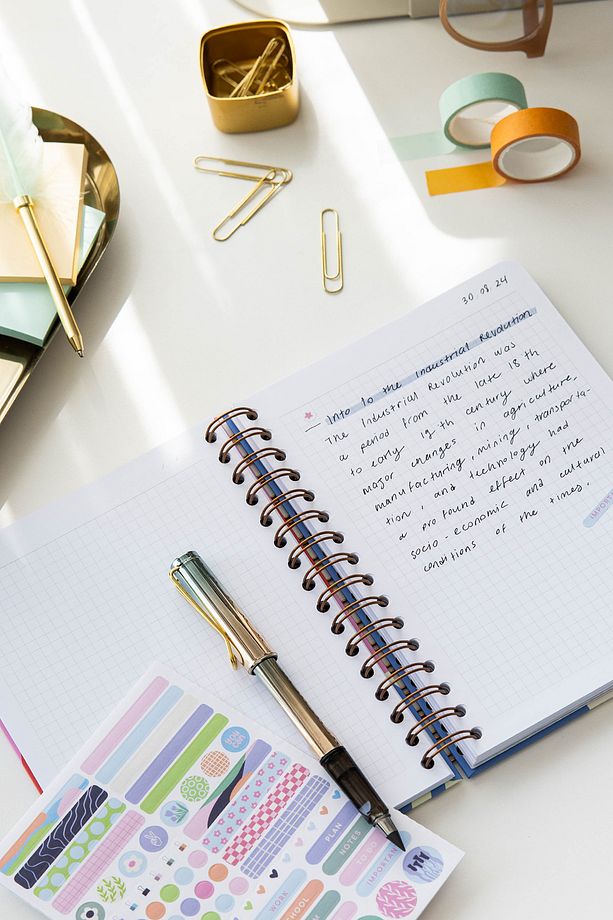 30 08 24
Into to the Industrial Revolution
The Industrial Revolution was
a period from the late 18th
to early 19th century where
major changes in agriculture,
manufacturing, mining, transporta-
tion, and technology had
a profound effect on the
socio-economic and cultural
conditions of the times.
IMPORT
YOU CAN
PLAN
NOTES
TO DO
IMPORTANT
WORK